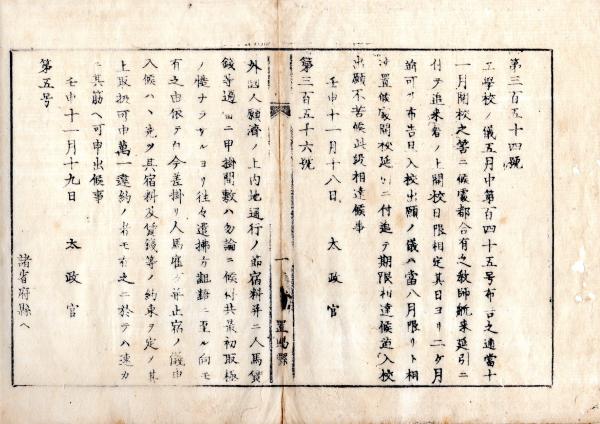 第三百五十四號
工學校ノ儀五月中第百四十五号布告之通當十
一月開校之筈ニ候處都合有之教師航来延引ニ
付テ追来着ノ上開校日限相定其日ヨリ二ケ月
前可及布告旦入校出願ノ儀ハ當八月限リト相
置候處開校延引ニ付追テ期限相達候迄入校
出願不苦候此段相達候事
壬申十一月十八日 太政官
第三百五十六號
外國人願濟ノ上内地通行ノ節宿料并ニ人馬賃
錢等過當ニ申掛間敷ハ勿論ニ候得共最初取極
ノ慥ナラサルヨリ往々遺拂方齟齬ニ至ル向モ
有之由依テ自今差掛リ人馬雇方并止宿ノ儀申
入候ハヽ兎ヲ其宿料及賃錢等ノ約束ヲ定メ其
上取扱可申萬一違約ノ者モ有之ニ於テハ速カ
ニ其筋ヘ可申出候事
壬申十一月十九日 太政官
第五号
諸省府縣ヘ
一
置賜縣